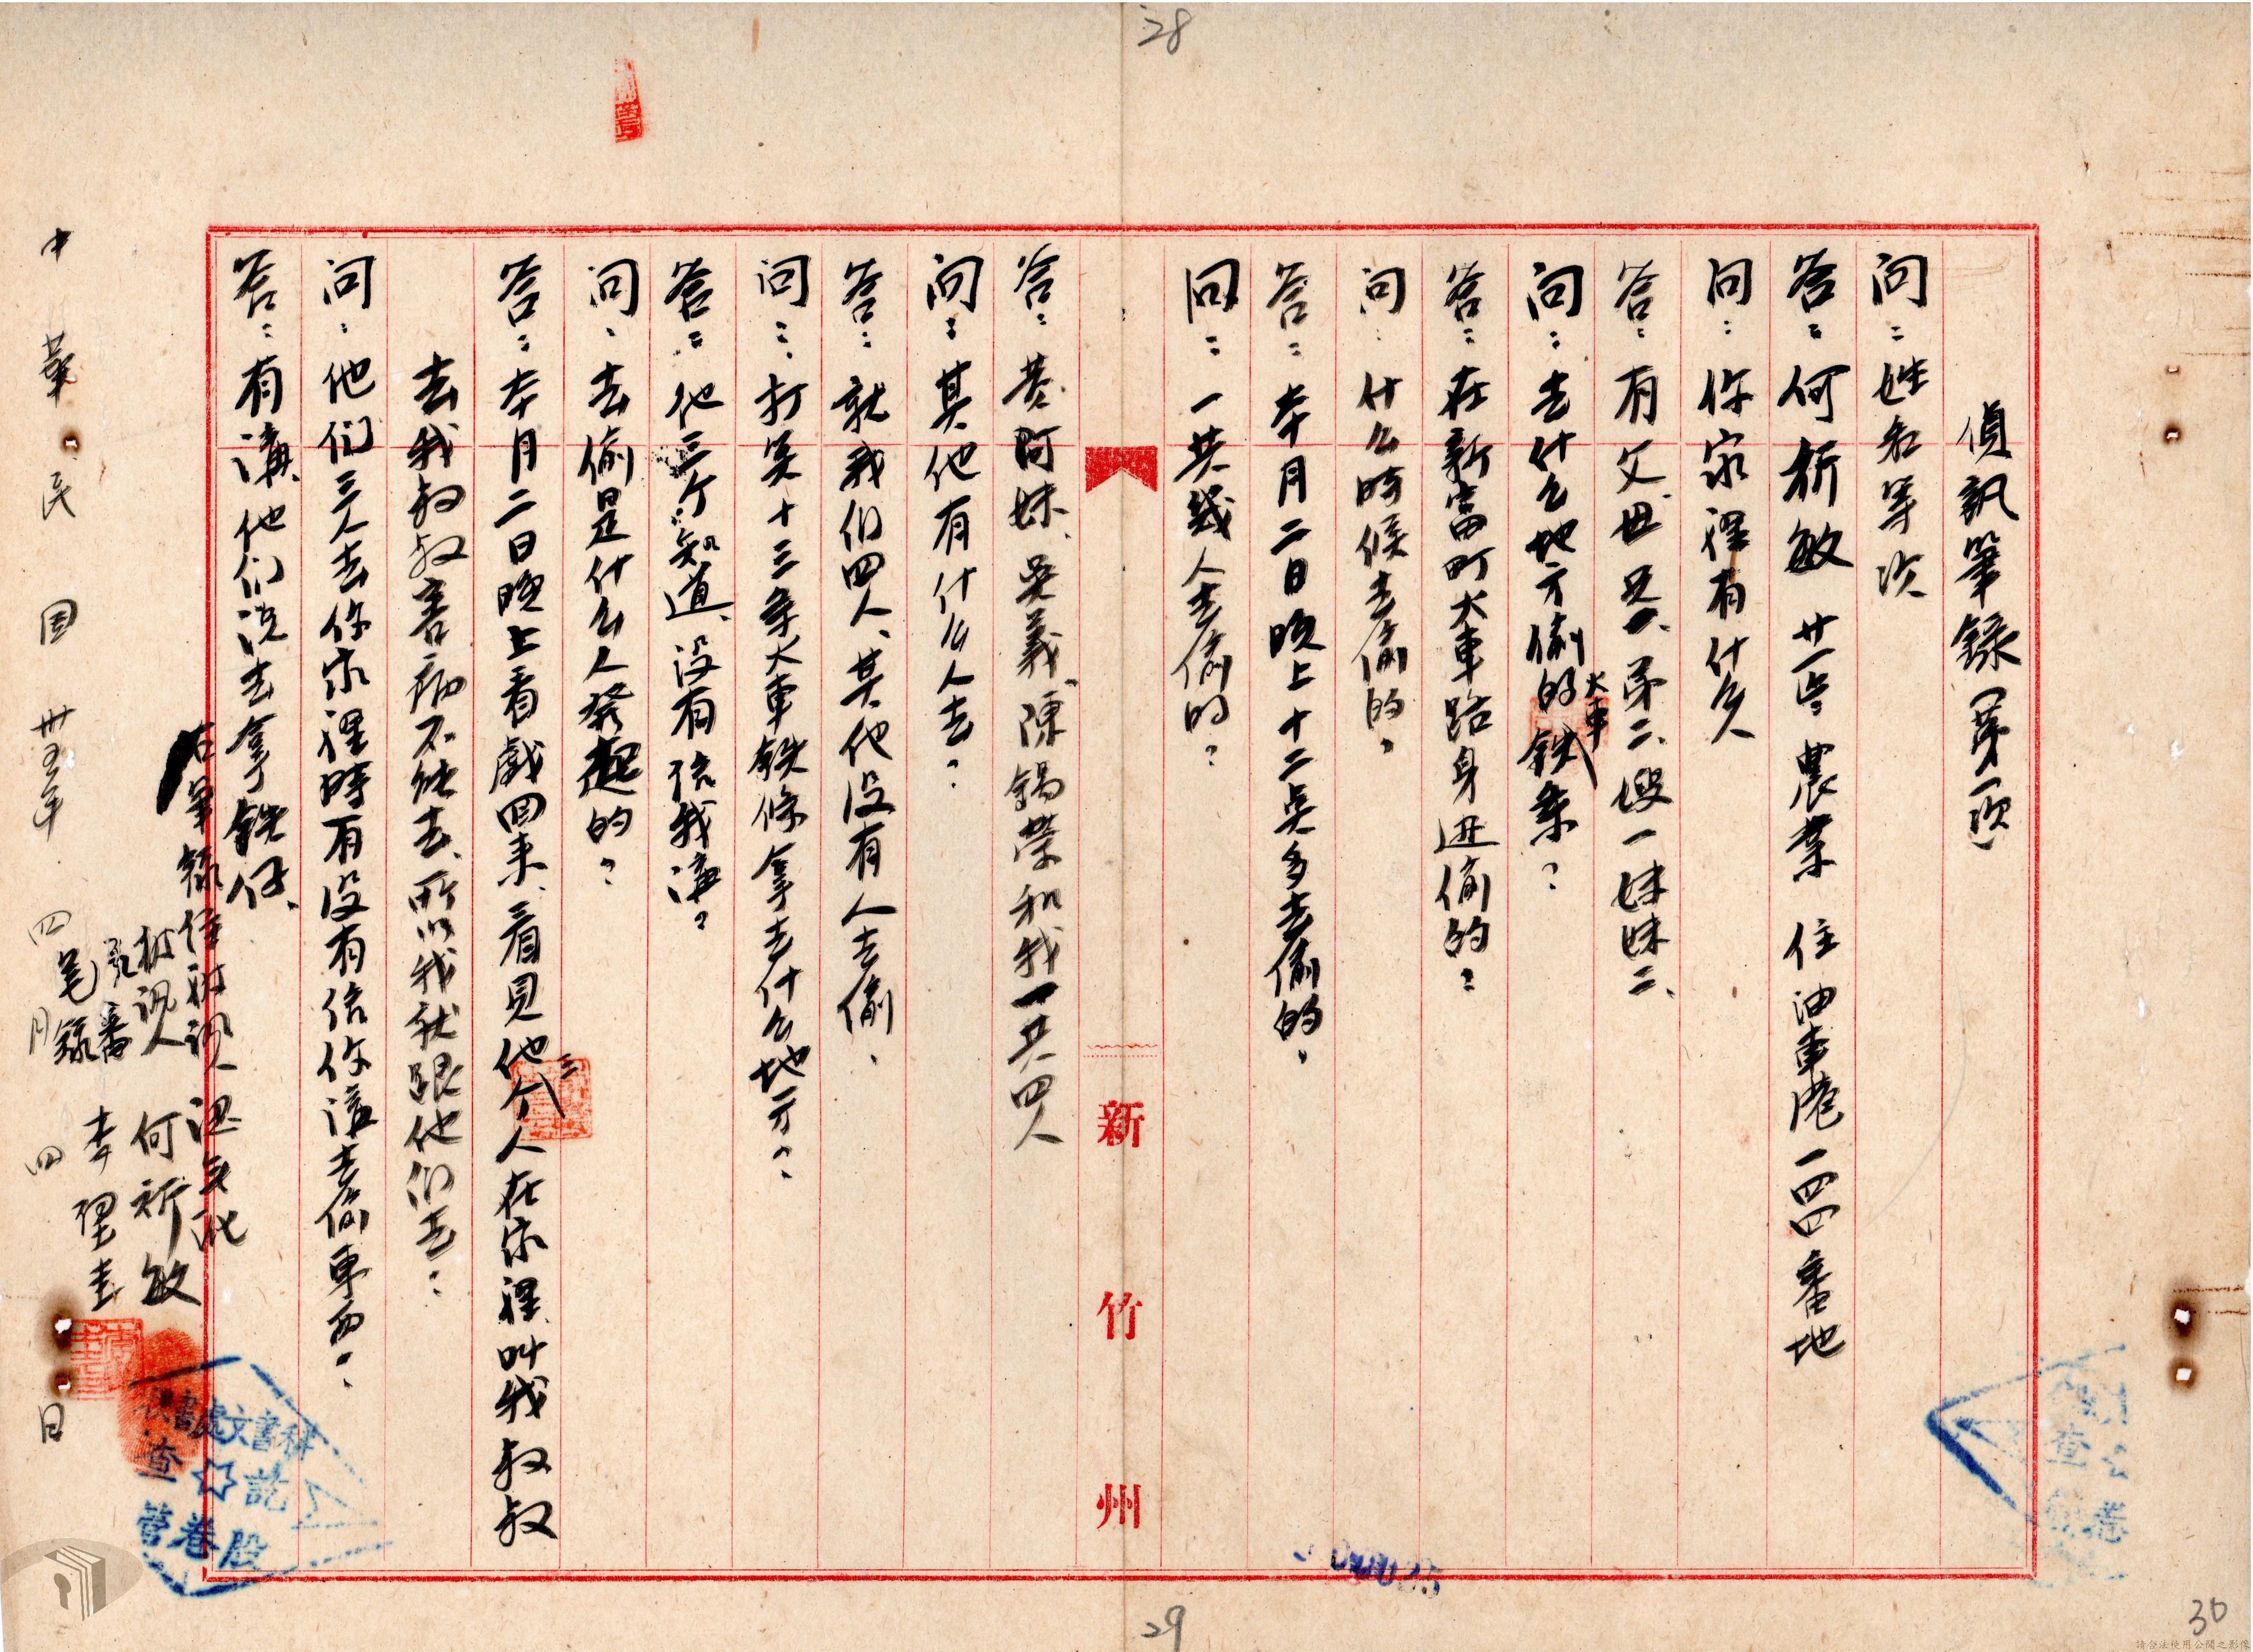 28
偵訊筆錄(第一次)
问:姓名年次
答:何祈敏 廿一 農業 住油車港一四四番地
问:你家裡有什么人
答:有父、母、兄一、弟二、嫂一妹妹二、
问:去什么地方偷的大車鉄条?
答:在新富町火車路身边偷的?
问:什么時候去偷的?
答:本月二日晚上十二点多去偷的、
问:一共幾人去偷的?
新竹州
答:黄阿妹、吳義、陳錫荣和我一共四人
问:其他有什么人去?
答:就我们四人、其他没有人去偷、
问:打算十三条火車鉄條拿去什么地方?
答:他三个知道、没有給我講?
问:去偷是什么人發起的?
答:本月二日晚上看戲回来、看見他三个人在家裡叫我叔叔
去我叔叔害病不能去、所以我就跟他们去:
问:他们三人去你家裡時有没有給你講去偷車西?
答:有講他们说去拿鉄仔、
右筆錄経被訊人認無訛
被訊人 何祈敏
訊審
筆錄 李聖圭
中華民国卅五年四月四日
29
30
請合法使用公開之影像